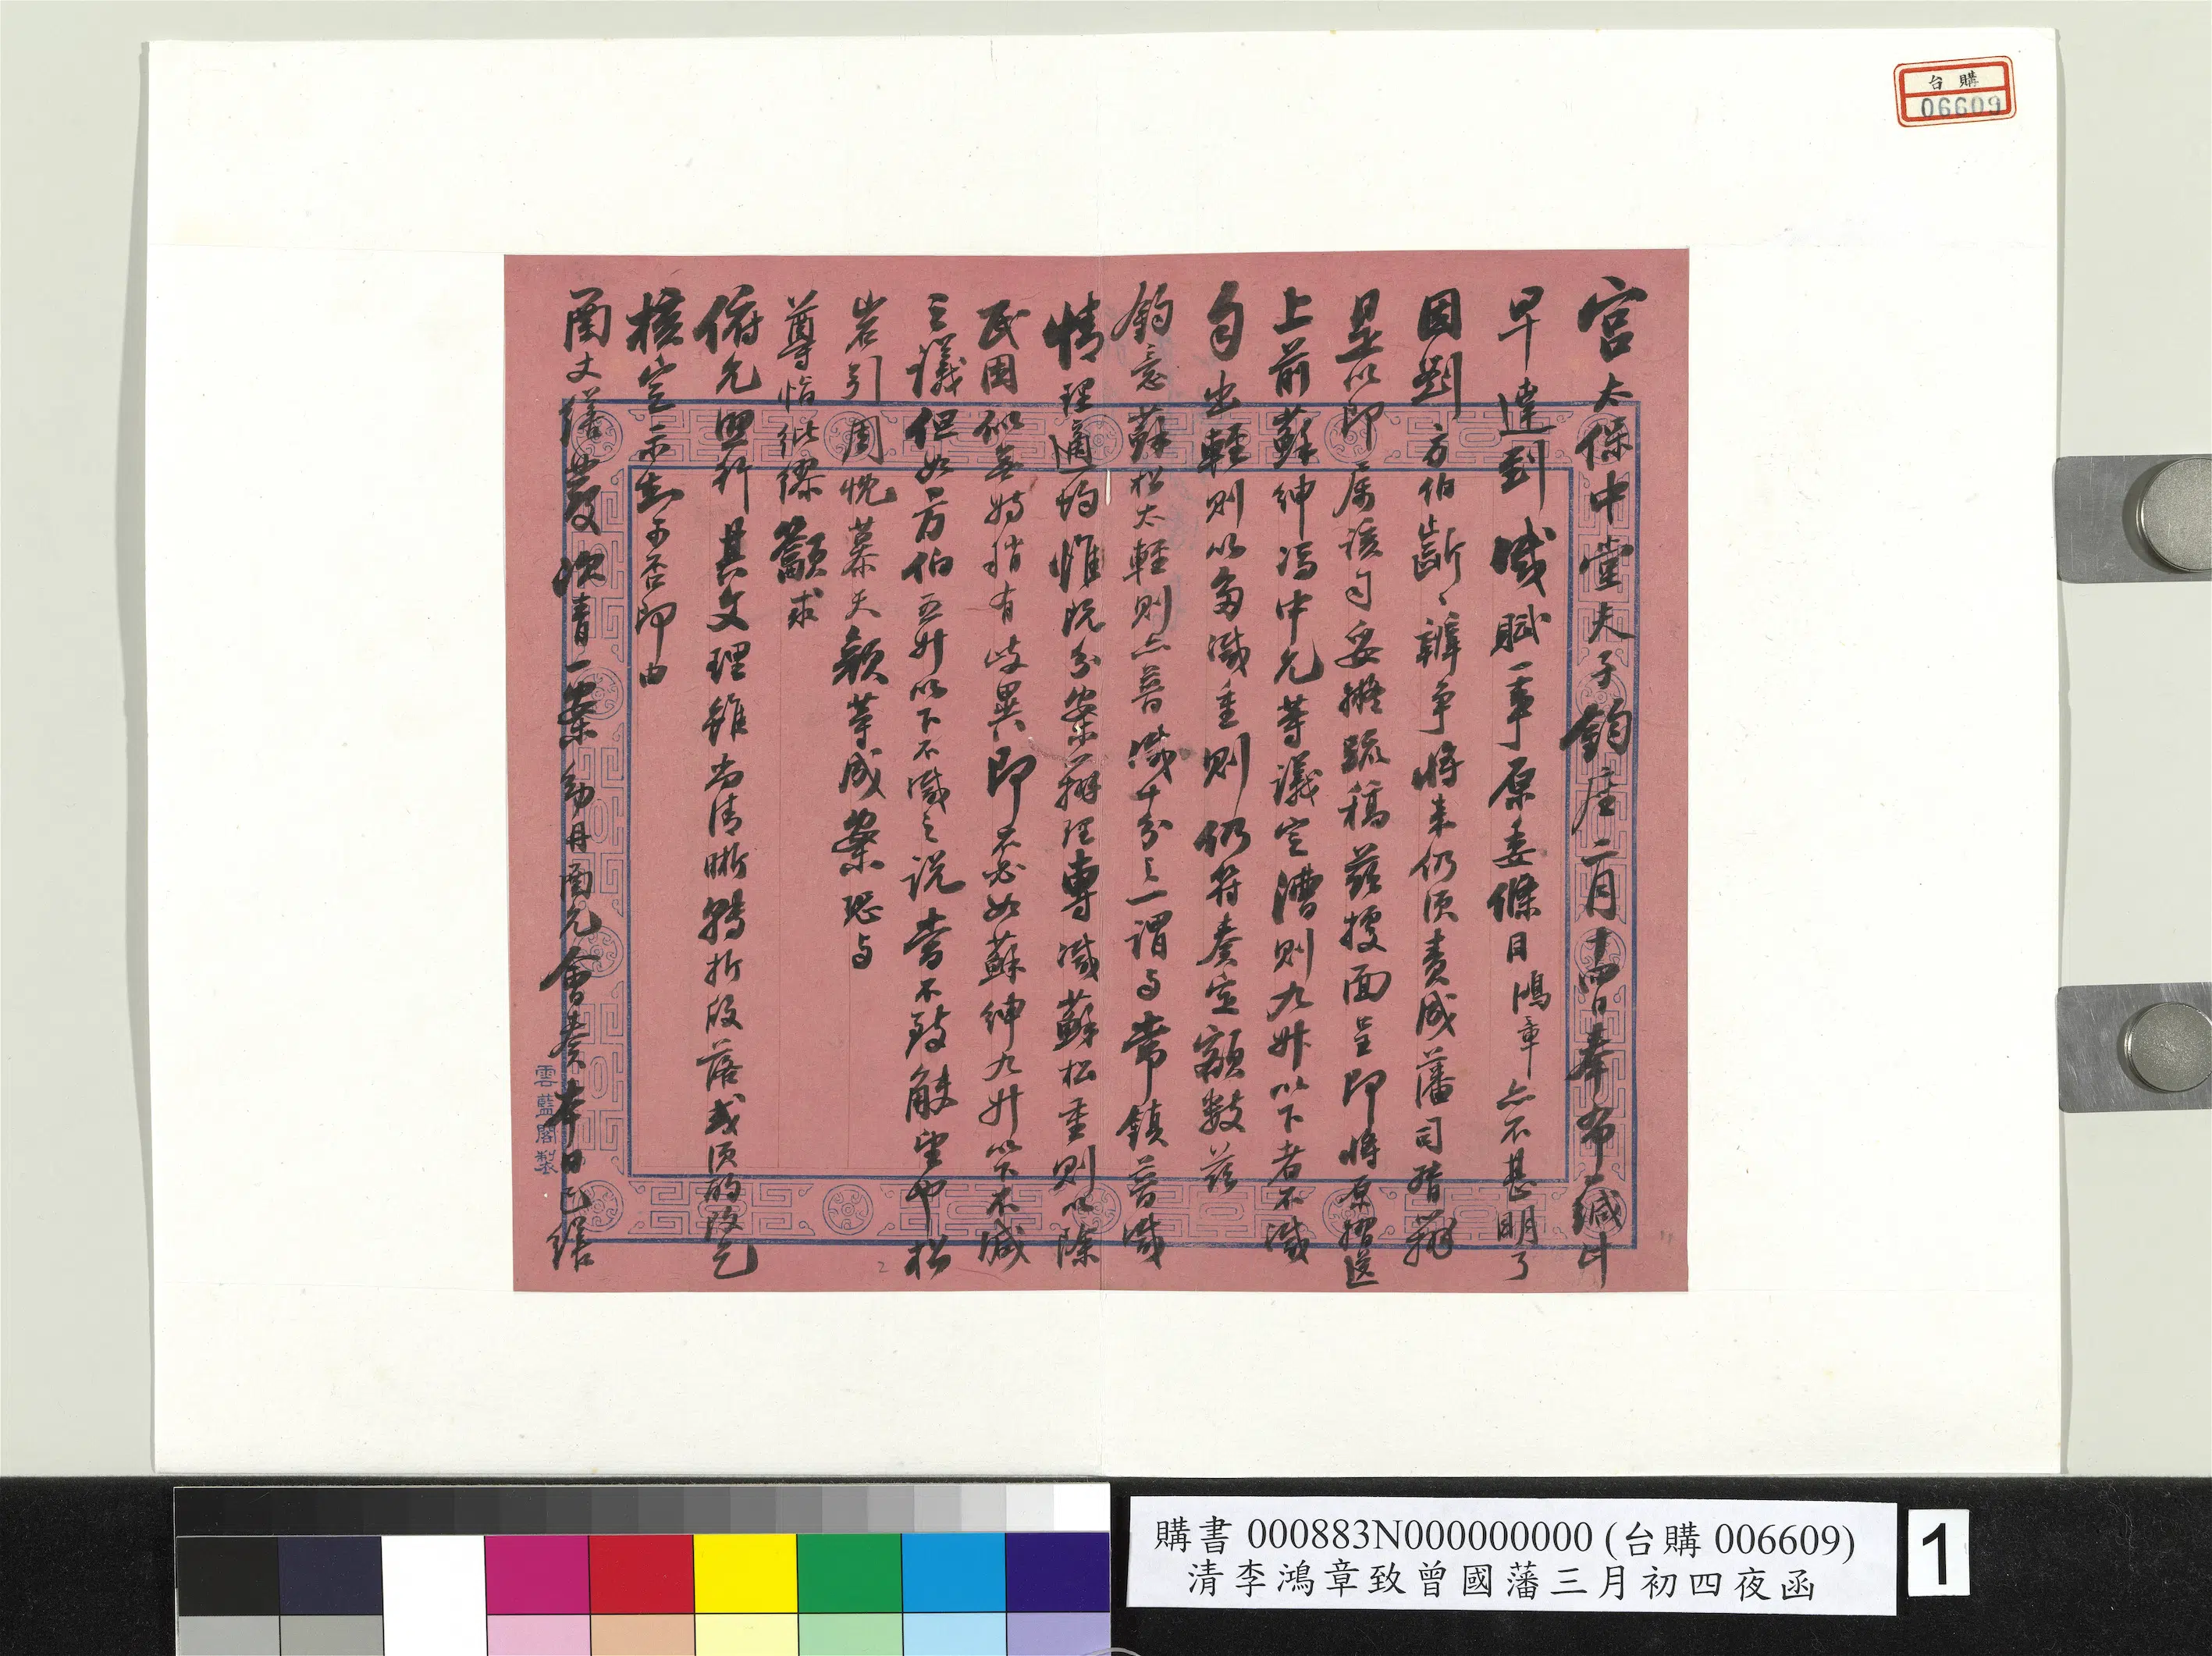 台購
06609
宮太保中堂夫子鈞座二月十四日奉布一緘計
早達到減賦一事原委條目鴻章亦不甚明了
因劉方伯斷斷辯爭將來仍須責成藩司豬辦
是以即屬該司妥擬疏稿茲據面呈即將原摺送
上前蘇紳馮中允等議定漕則九升以下者不減
自出輕則以多減重則仍符奏定額數茲
鈞意蘇松太輕則亦普減十分之一謂与常鎮普減
情理適均惟既分案辦理專減蘇松重則以除
民困似無妨稍有歧異即不必如蘇紳九升以下不減
之議但如方伯五升以下不減之說嘗不致觖望也松
岩引周忱慕天顏等成案恐与
尊恉紕繆籲求
俯允照行其文理雖尚清晰轉折段落或須酌改乞
核定示知可否即由
尊處繕發次青一案幼丹雨亢會奏本日已繕
雲藍閣製
購書 000883N000000000 (台購 006609)
清李鴻章致曾國藩三月初四夜函
1